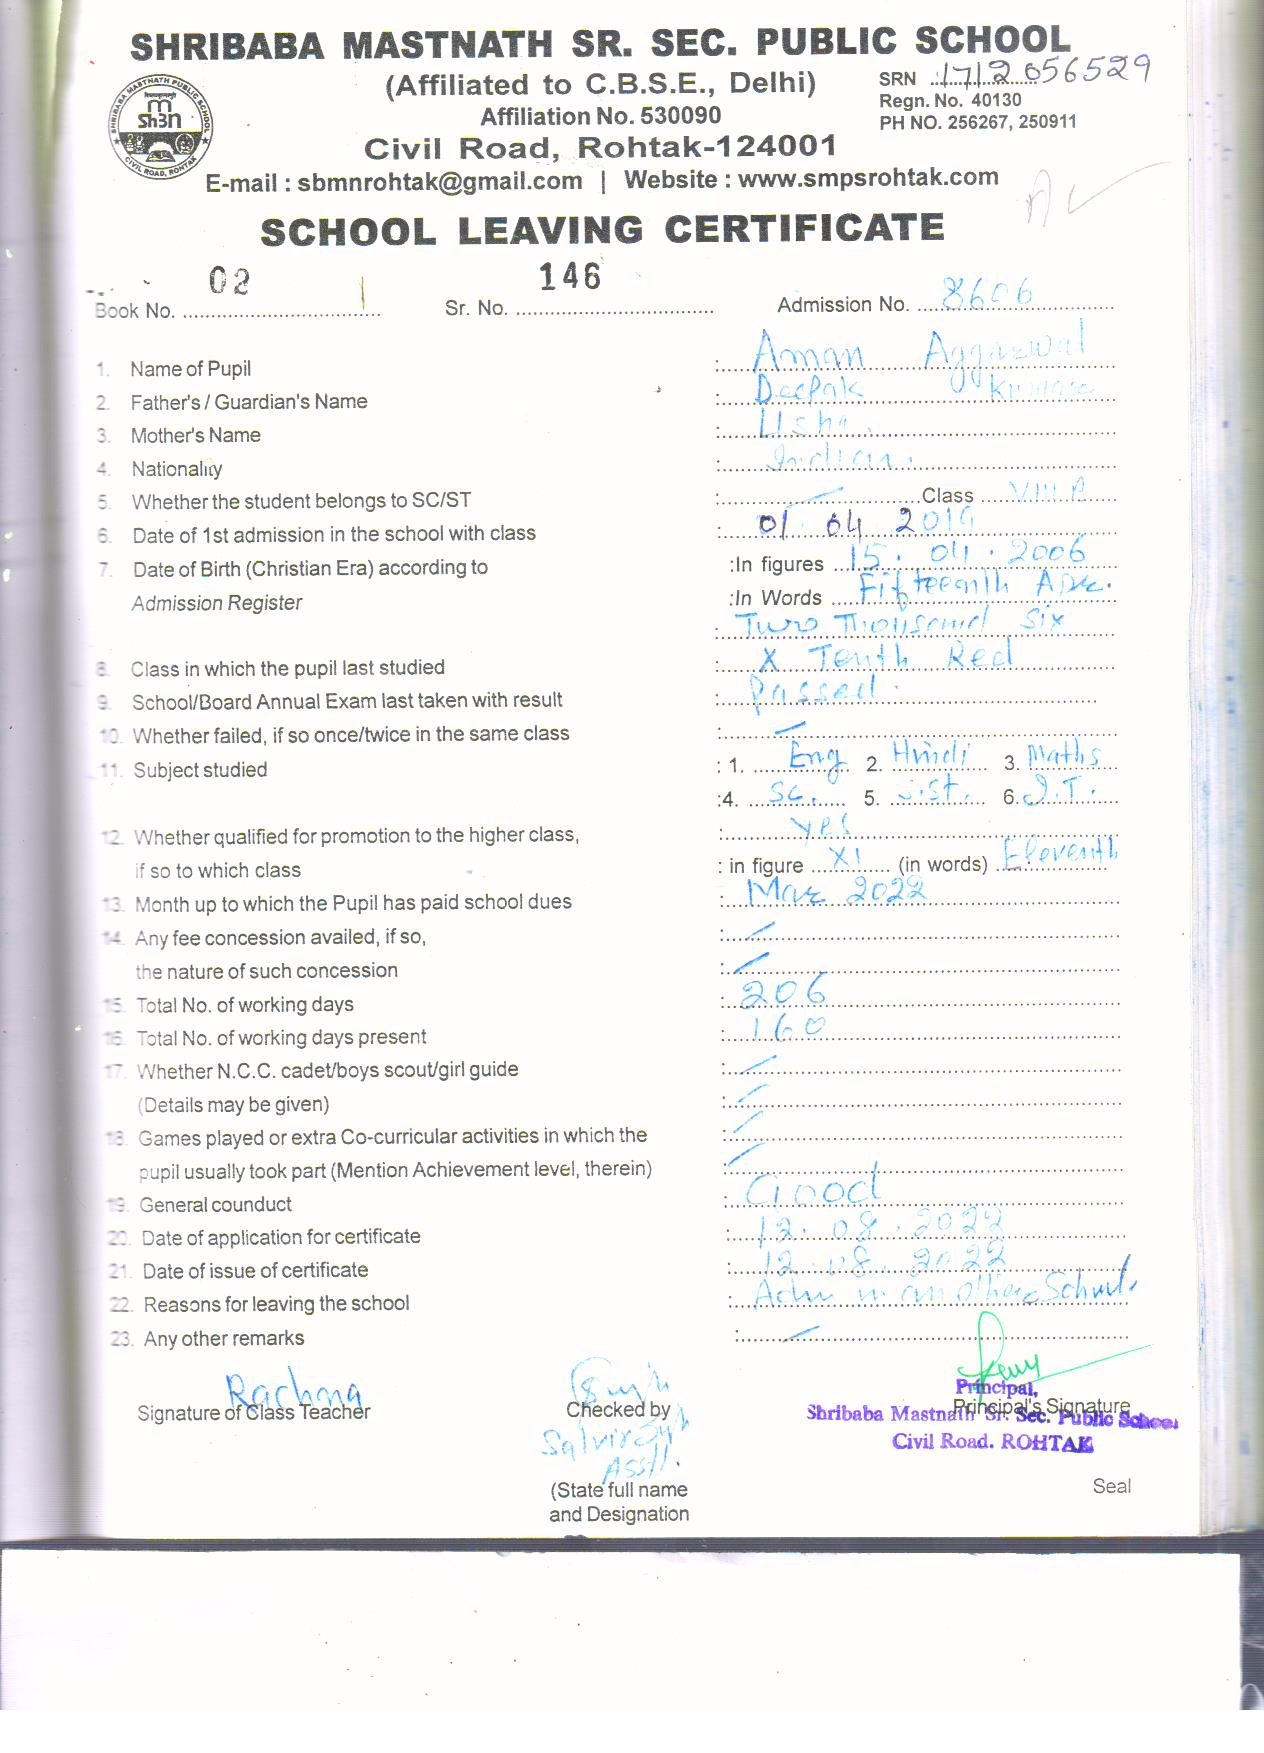 SHRIBABA MASTNATH SR. SEC. PUBLIC SCHOOL
(Affiliated to C.B.S.E., Delhi)
SRN 1712056529
Affiliation No. 530090
Regn. No. 40130
PH NO. 256267, 250911
Civil Road, Rohtak-124001
E-mail : sbmnrohtak@gmail.com | Website : www.smpsrohtak.com
SCHOOL LEAVING CERTIFICATE
Book No. 02 Sr. No. 146 Admission No. 8606
1. Name of Pupil : Aman Aggarwal
2. Father's / Guardian's Name : Deepak Kumar
3. Mother's Name : Usha.
4. Nationality : Indian.
5. Whether the student belongs to SC/ST : Class VIII
6. Date of 1st admission in the school with class : 01 04 2019
7. Date of Birth (Christian Era) according to :In figures 15.04.2006
Admission Register :In Words Fifteenth Apr.
: Two Thousand Six
8. Class in which the pupil last studied : X Tenth Red
9. School/Board Annual Exam last taken with result : Passed.
10. Whether failed, if so once/twice in the same class :
11. Subject studied : 1. Eng 2. Hindi 3. Maths
:4. Sc. 5. S.St. 6. I.T.
12. Whether qualified for promotion to the higher class, : yes
if so to which class : in figure XI (in words) Eleventh
13. Month up to which the Pupil has paid school dues : Mar 2022
14. Any fee concession availed, if so, :
the nature of such concession :
15. Total No. of working days : 206
16. Total No. of working days present : 160
17. Whether N.C.C. cadet/boys scout/girl guide :
(Details may be given) :
18. Games played or extra Co-curricular activities in which the :
pupil usually took part (Mention Achievement level, therein) :
19. General counduct : Good
20. Date of application for certificate : 12.08.2022
21. Date of issue of certificate : 12.08.2022
22. Reasons for leaving the school : Adm in an other School.
23. Any other remarks :
Rachna
Signature of Class Teacher
Checked by
Asstt.
(State full name
and Designation
Principal,
Principal's Signature
Shribaba Mastnath Sr. Sec. Public School
Civil Road. ROHTAK
Seal